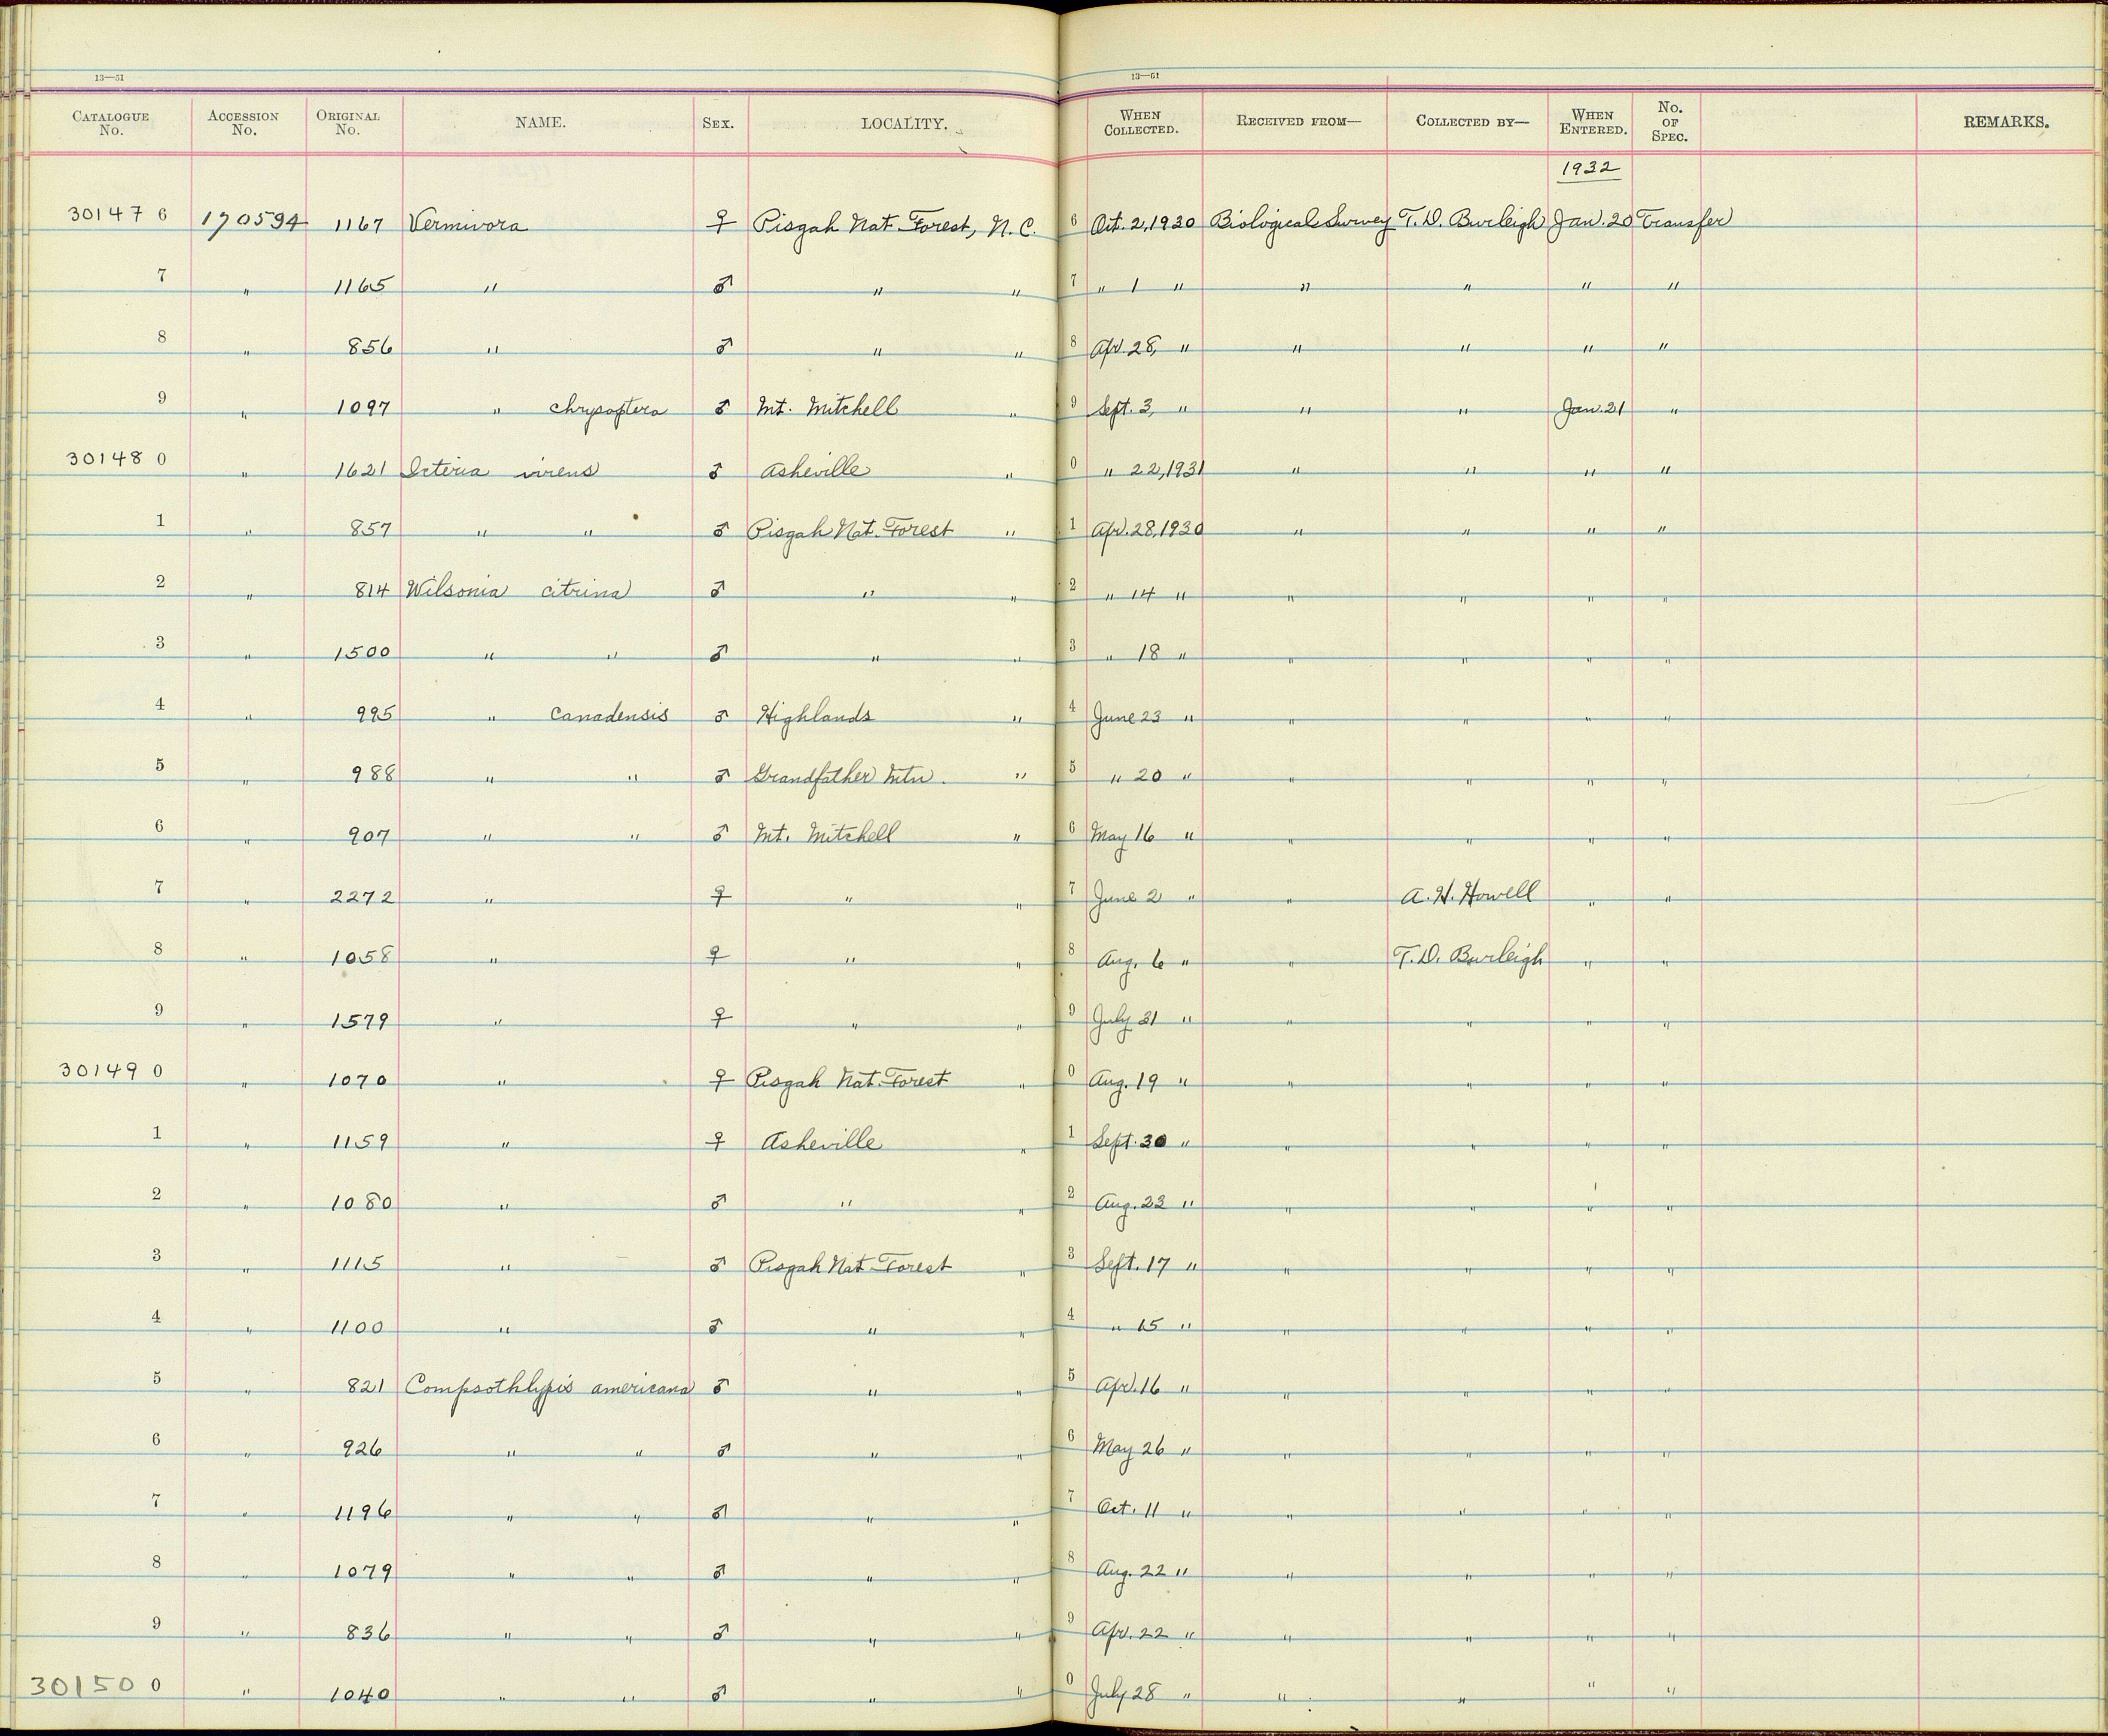 13—51 13—61
CATALOGUE No. ACCESSION No. ORIGINAL No. NAME. SEX. LOCALITY. WHEN COLLECTED. RECEIVED FROM— COLLECTED BY— WHEN ENTERED. No. OF SPEC. REMARKS.
1932
301476 190594 1167 Vermivora ♀ Pisgah Nat. Forest, N.C. 6 Oct. 2, 1930 Biological Survey T. D. Burleigh Jan. 20 Transfer
7 " 1165 " ♂ " " 7 " 1 " " " " "
8 " 856 " ♂ " " 8 Apr. 28, " " " " "
9 " 1097 " chrysoptera ♂ Mt. Mitchell " 9 Sept. 3, " " " Jan. 21 "
301480 " 1621 Icteria virens ♂ Asheville " 0 " 22, 1931 " " " "
1 " 857 " " ♂ Pisgah Nat. Forest " 1 Apr. 28, 1930 " " " "
2 " 814 Wilsonia citrina ♂ " " 2 " 14 " " " " "
3 " 1500 " " ♂ " " 3 " 18 " " " " "
4 " 995 " canadensis ♂ Highlands " 4 June 23 " " " " "
5 " 988 " " ♂ Grandfather Mtn. " 5 " 20 " " " " "
6 " 907 " " ♂ Mt. Mitchell " 6 May 16 " " " " "
7 " 2272 " ♀ " " 7 June 2 " " A. H. Howell " "
8 " 1058 " ♀ " " 8 Aug. 6 " " T. D. Burleigh " "
9 " 1579 " ♀ " " 9 July 31 " " " " "
301490 " 1070 " ♀ Pisgah Nat. Forest " 0 Aug. 19 " " " " "
1 " 1159 " ♀ Asheville " 1 Sept. 30 " " " " "
2 " 1080 " ♂ " " 2 Aug. 23 " " " " "
3 " 1115 " ♂ Pisgah Nat. Forest " 3 Sept. 17 " " " " "
4 " 1100 " ♂ " " 4 " 15 " " " " "
5 " 821 Compsothlypis americana ♂ " " 5 Apr. 16 " " " " "
6 " 926 " " ♂ " " 6 May 26 " " " " "
7 " 1196 " " ♂ " " 7 Oct. 11 " " " " "
8 " 1079 " " ♂ " " 8 Aug. 22 " " " " "
9 " 836 " " ♂ " " 9 Apr. 22 " " " " "
301500 " 1040 " " ♂ " " 0 July 28 " " " " "